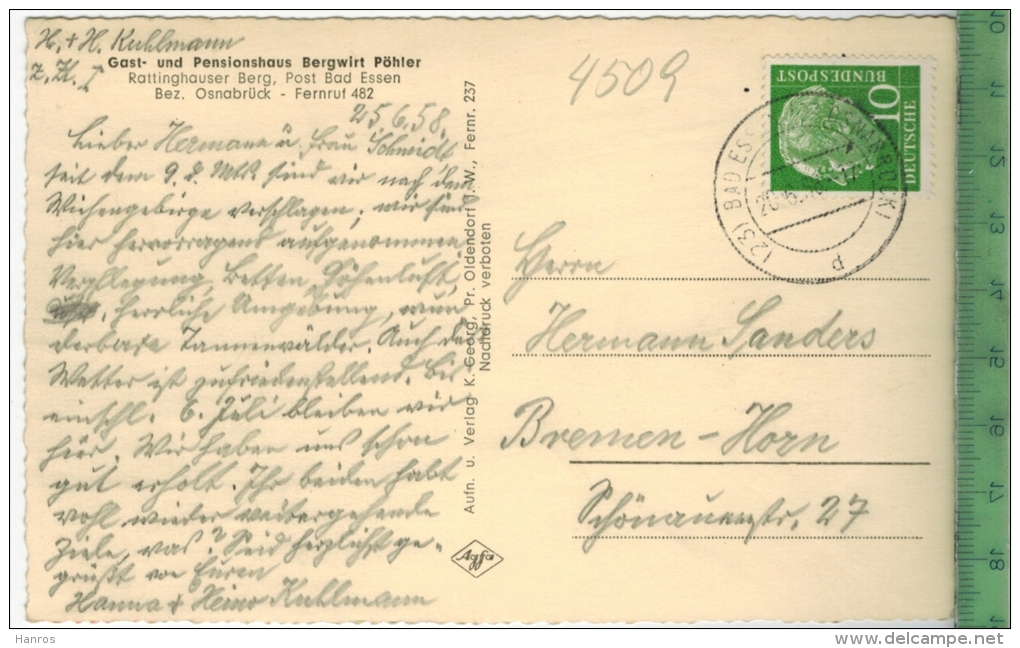 H. + H. Kuhlmann
z. Zt.
Gast- und Pensionshaus Bergwirt Pöhler
Rattinghauser Berg, Post Bad Essen
Bez. Osnabrück - Fernruf 482
25.6.58.
Lieber Hermann u. Frau Schmidt
seit dem 9. d. Mts. sind wir nach dem
Wiehengebirge verschlagen; wir sind
hier hervorragend aufgenommen
Verpflegung, Betten, Höhenluft,
herrliche Umgebung, wun-
derbare Tannenwälder. Auch das
Wetter ist zufriedenstellend. Bis
einschl. 6. Juli bleiben wir
hier. Wir haben uns schon
gut erholt. Ihr beiden habt
wohl wieder weitergehende
Ziele, was? Seid herzlichst ge-
grüßt von Euren
Hanna + Heino Kuhlmann
Aufn. u. Verlag K. Georg, Pr. Oldendorf i. W., Fernr. 237
Nachdruck verboten
Agfa
4509
10
DEUTSCHE
BUNDESPOST
(23) BAD ESSEN
OSNABRÜCK)
Herrn
Hermann Sanders
Bremen-Horn
Schönauerstr. 27
10
11
12
13
14
15
16
17
18
1
Hanros
www.delcampe.net